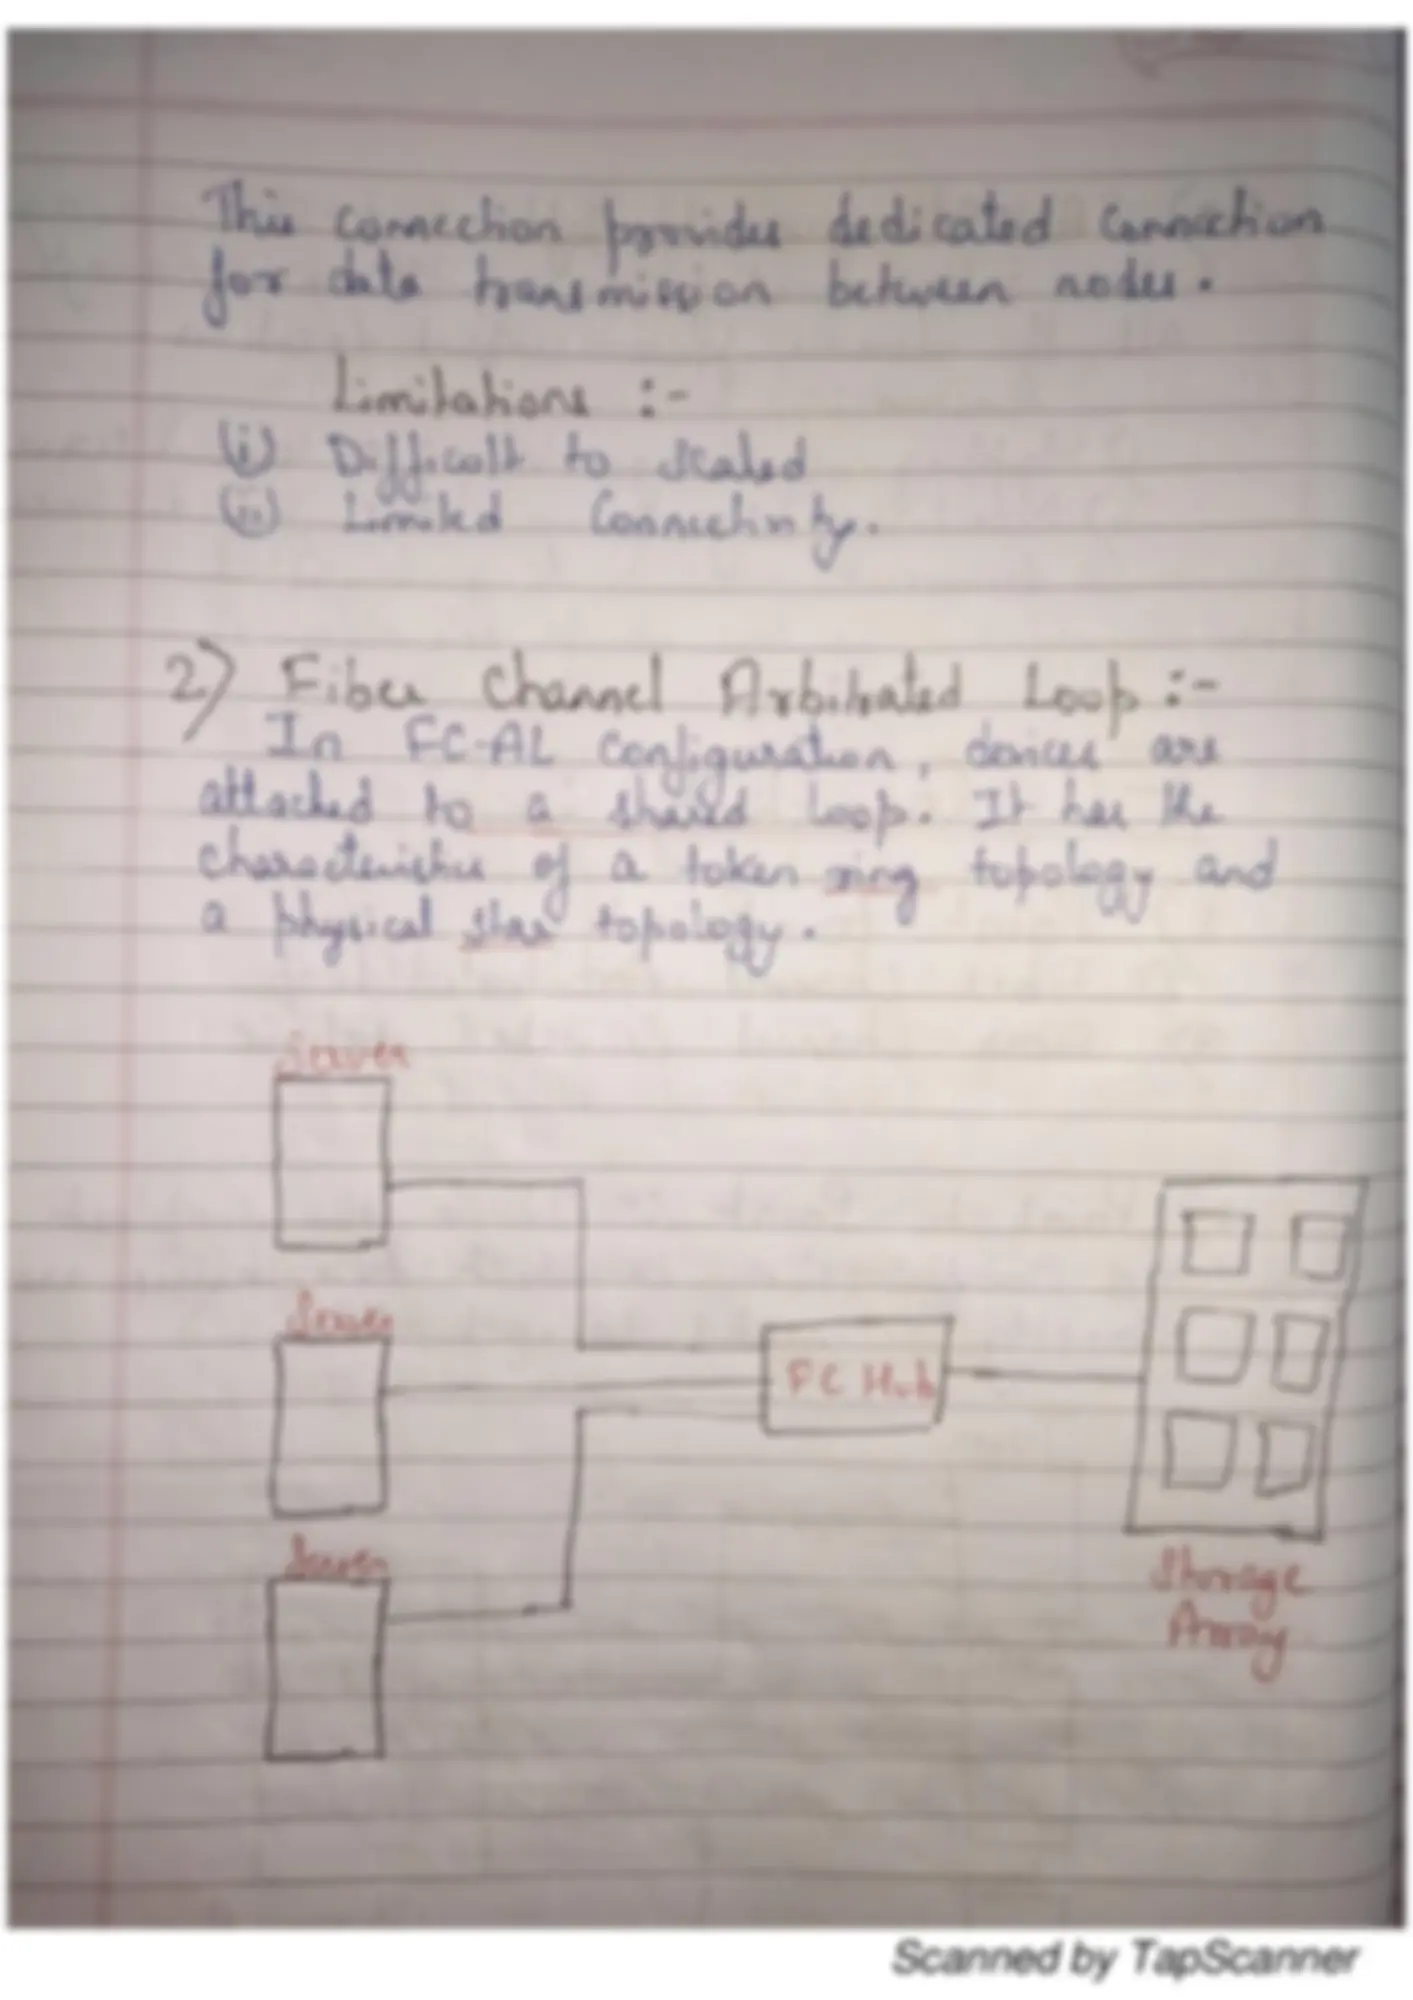 This connection provides dedicated connection
for data transmission between nodes.
Limitations :-
(i) Difficult to scaled
(ii) Limited Connectivity.
2) Fiber Channel Arbitrated Loop :-
In FC-AL configuration, devices are
attached to a shared loop. It has the
characteristics of a token ring topology and
a physical star topology.
Server
Server
FC Hub
Server
Storage
Array
Scanned by TapScanner